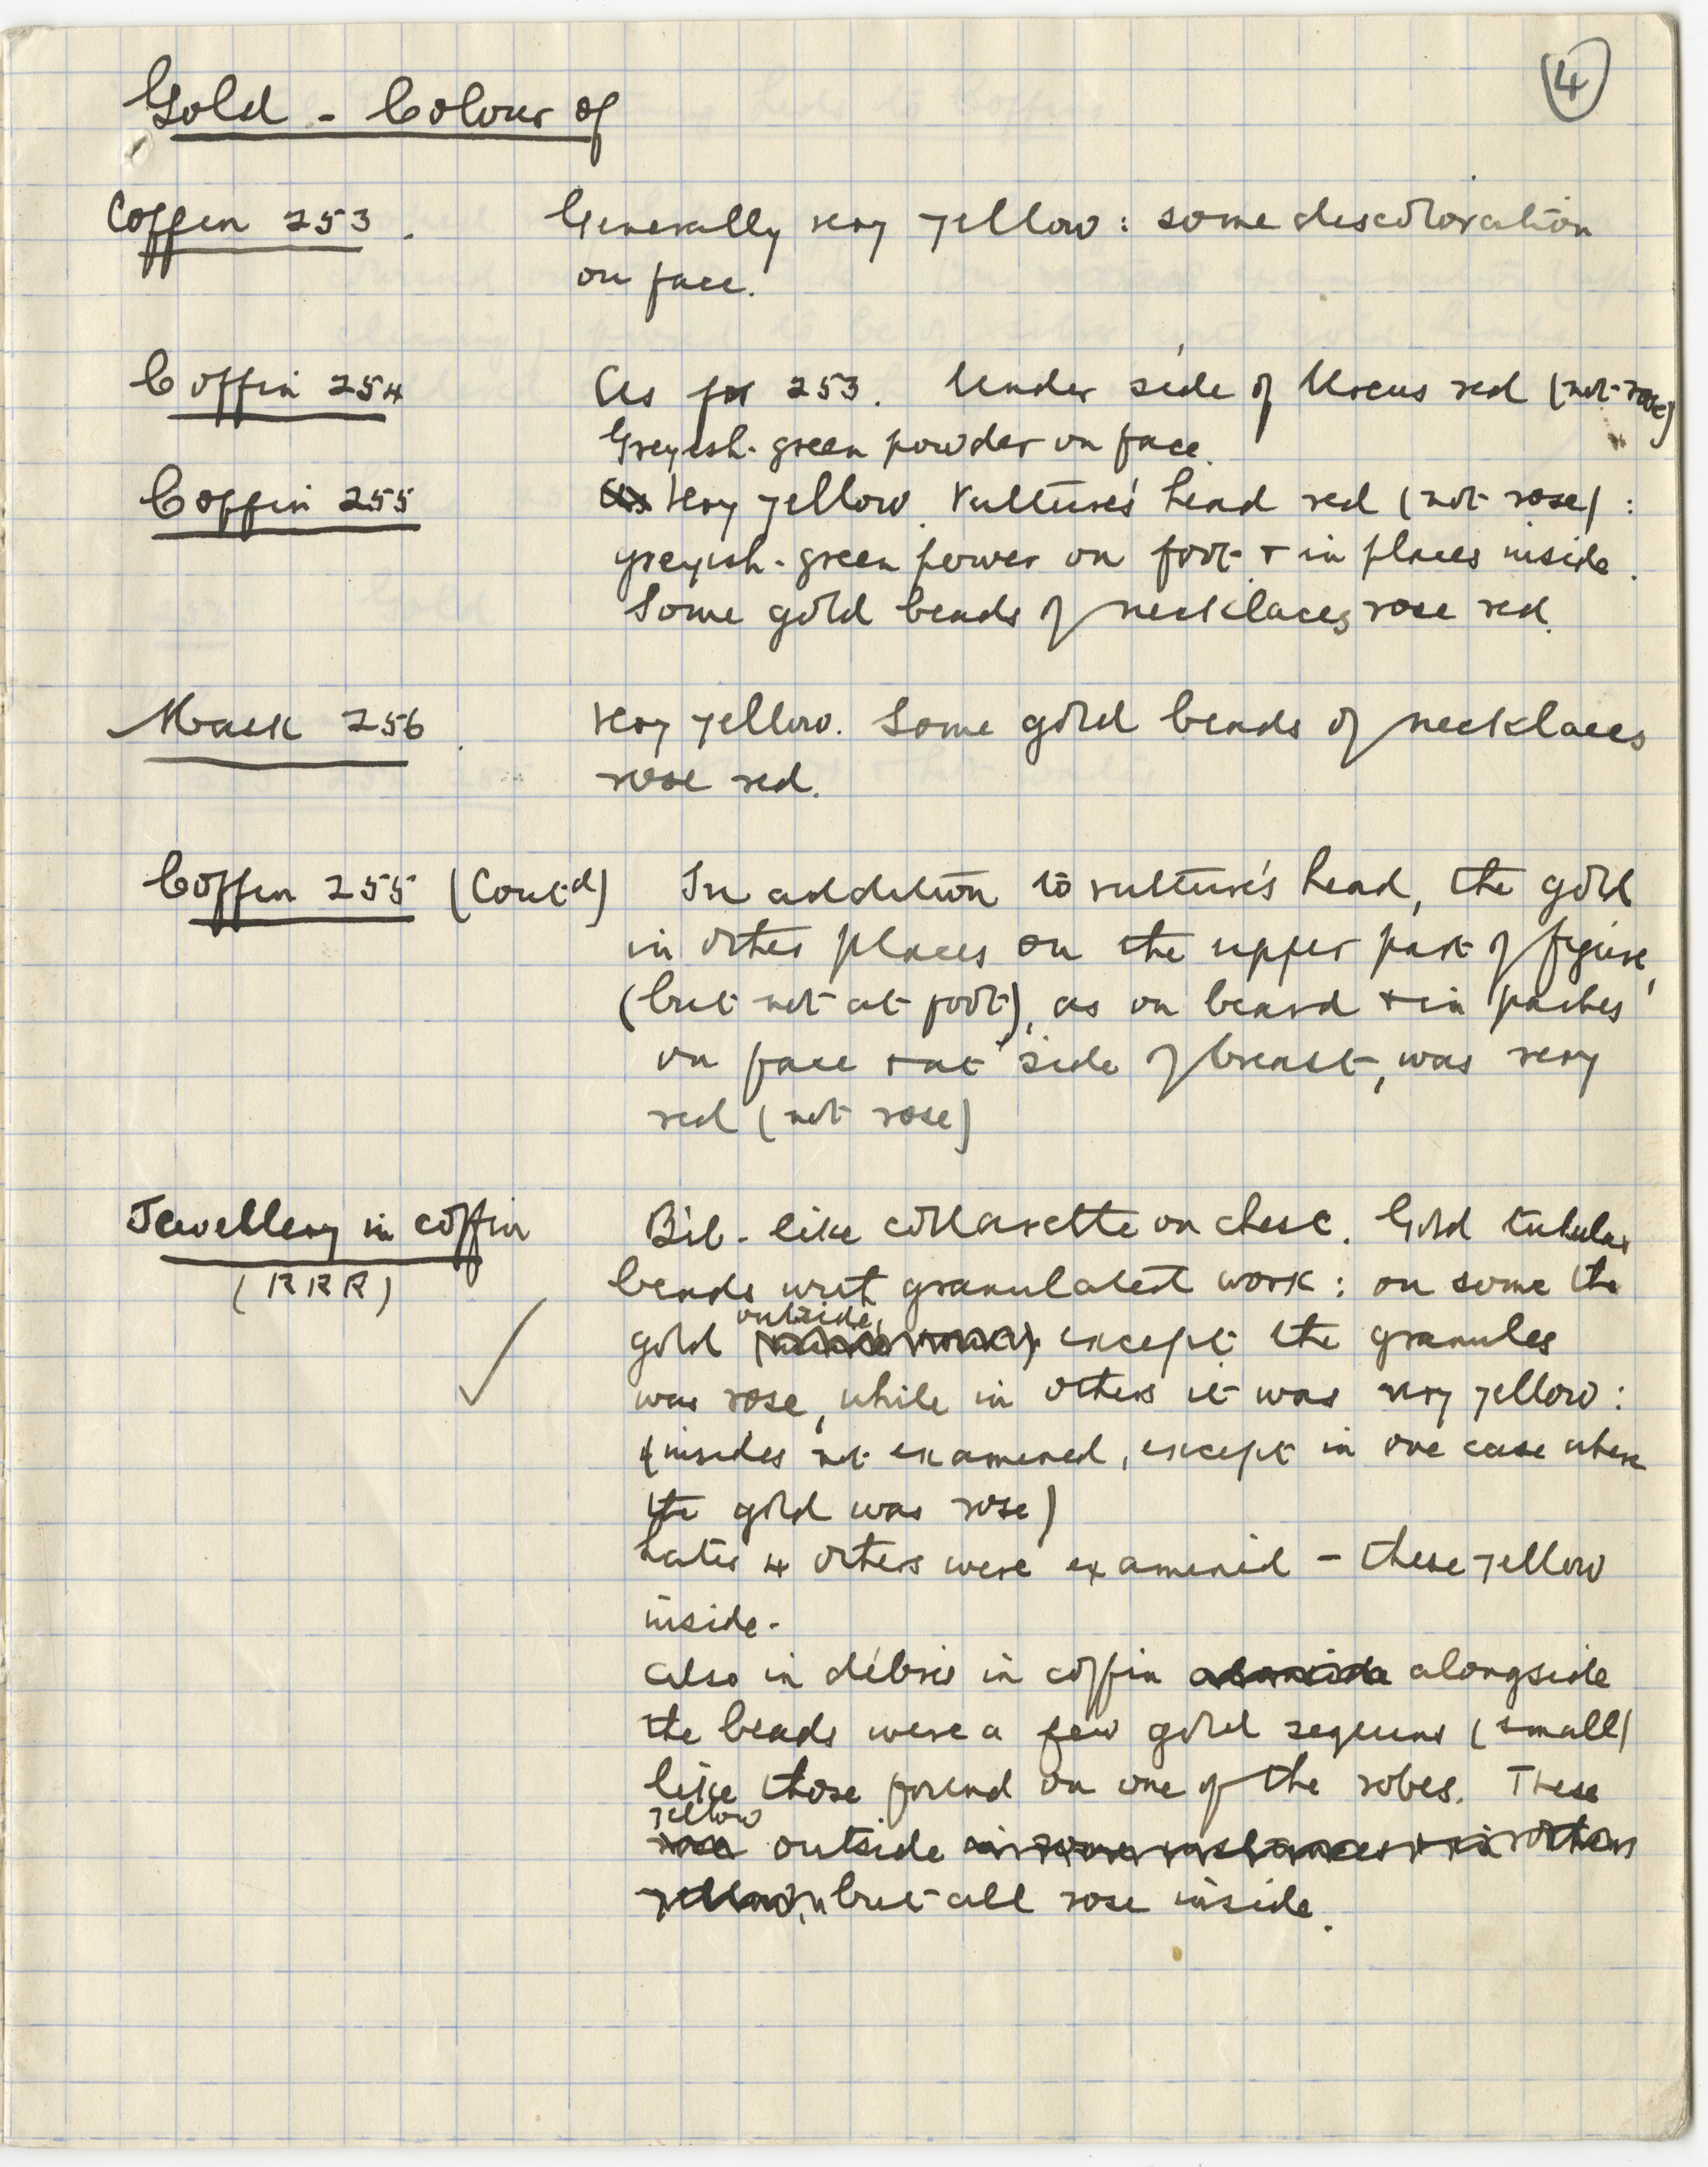 4
Gold - Colour of
Coffin 253. Generally very yellow: some discoloration
on face.
Coffin 254 As for 253. Under side of Uraeus red (not rose)
Greyish-green powder on face.
Coffin 255 Very yellow. Vulture's head red (not rose):
greyish-green power on foot + in places inside.
Some gold beads of necklaces rose red.
Mask 256. Very yellow. Some gold beads of necklaces
rose red.
Coffin 255 (Contd) In addition to vulture's head, the gold
in other places on the upper part of figure,
(but not at foot), as on beard + in paches
on face + at side of breast, was very
red (not rose)
Jewellery in coffin Bib-like collarette on chest. Gold tubular
(RRR) beads with granulated work: on some the
outside,
gold except the granules
was rose, while in others it was very yellow:
(insides not examined, except in one case where
the gold was rose)
Later 4 others were examined - these yellow
inside.
Also in débris in coffin alongside
the beads were a few gold sequins (small)
like those found on one of the robes. These
yellow
rose outside in some instances + in others
yellow, but all rose inside.